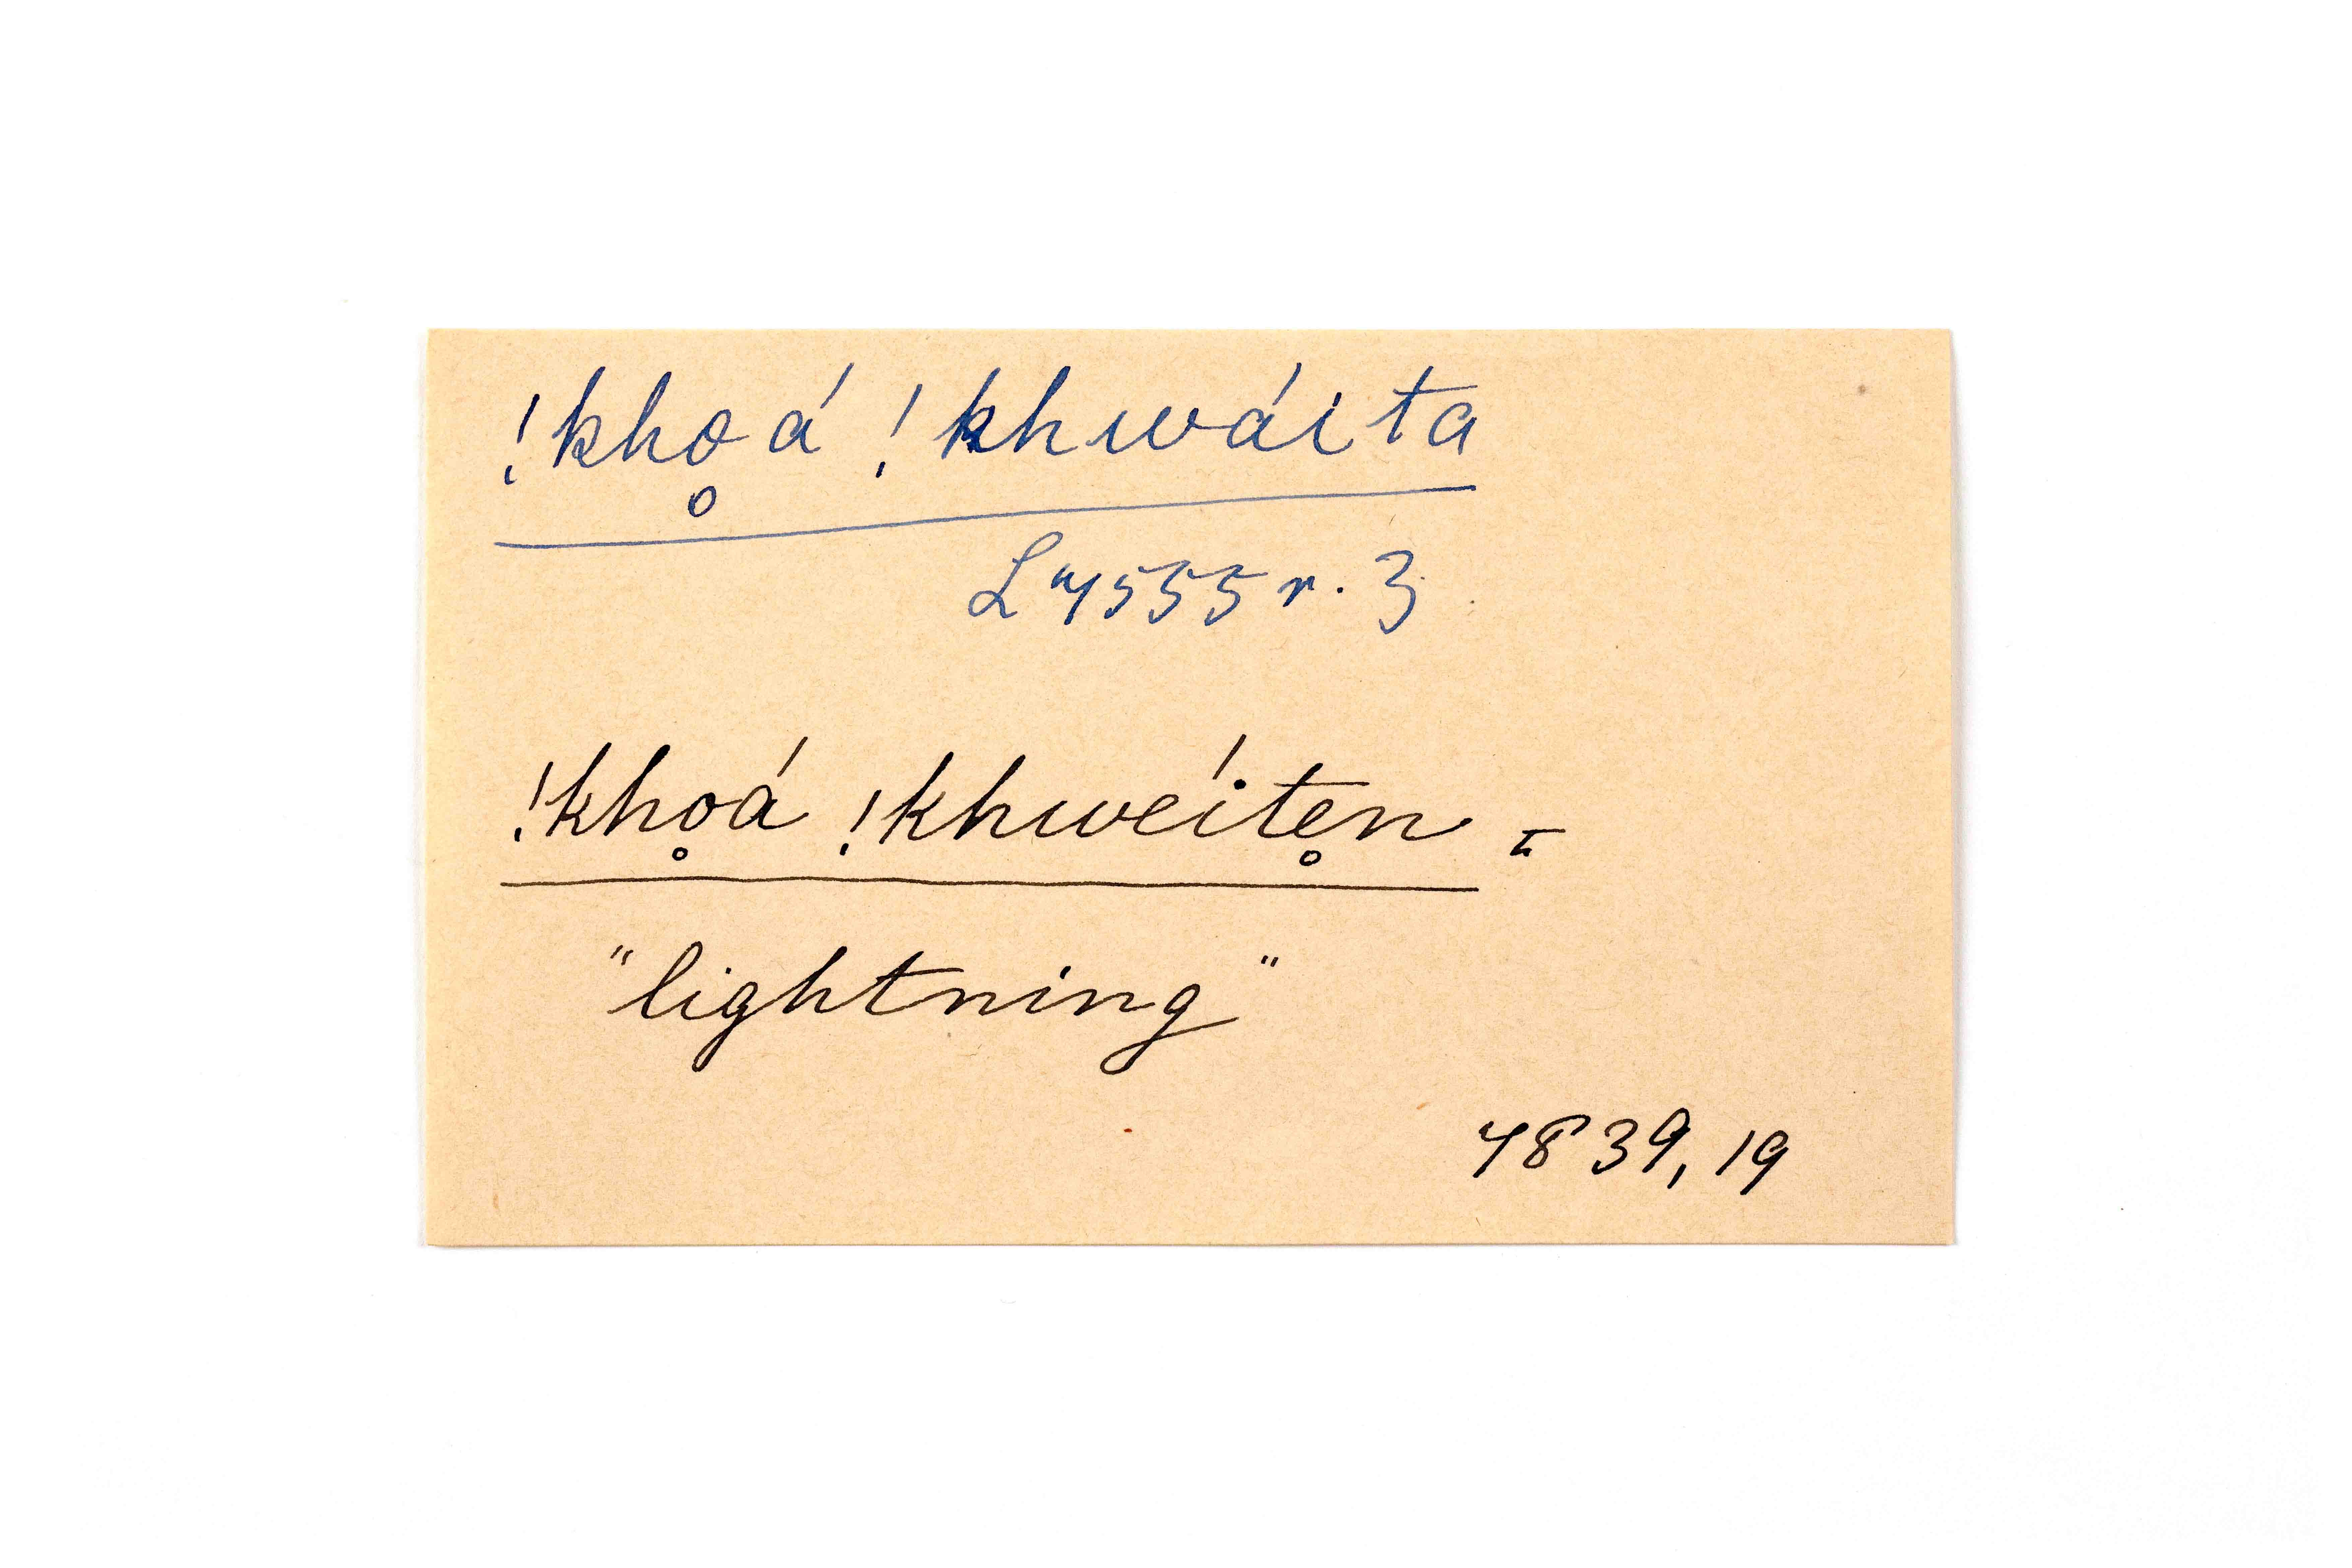 !kho̥á !khwáita
L 4555 r. 3
!kho̥á !khwéite̥n =
"lightning"
4839, 19